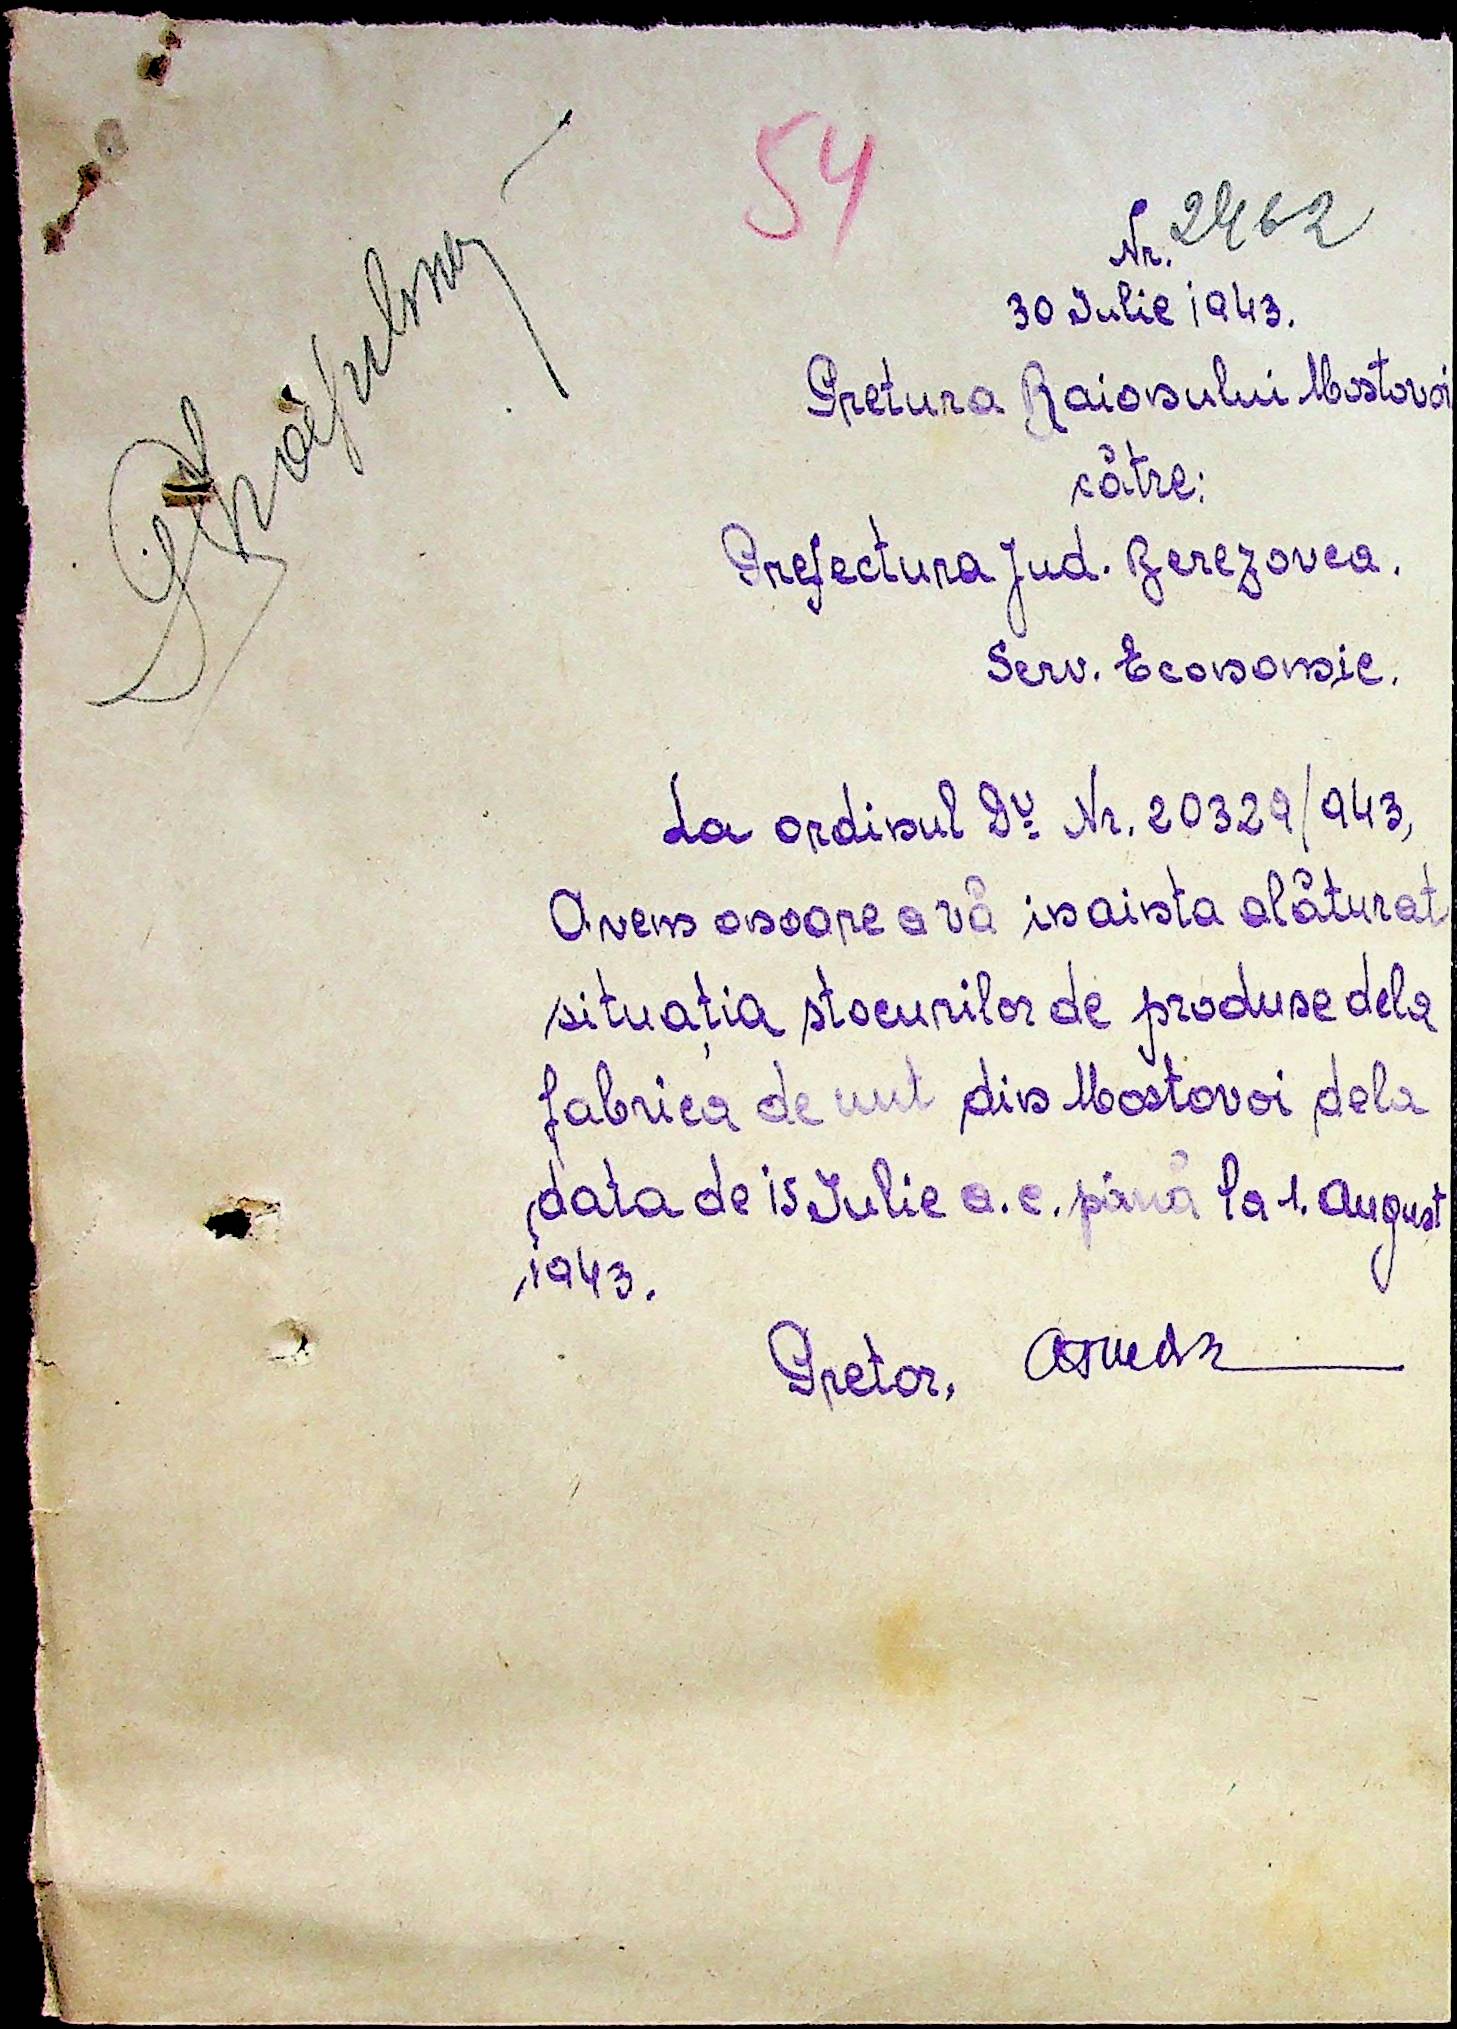 54
Nr. 2462
30 Iulie 1943.
Pretura Raionului Mostovoi
către:
Prefectura Jud. Berezovca.
Serv. Economic.
La ordinul Dv. Nr. 20329/943,
Avem onoare a vă inainta alăturat
situația stocurilor de produse dela
fabrica de unt din Mostovoi dela
data de 15 Iulie a.c. pînă la 1. August
1943.
Pretor,